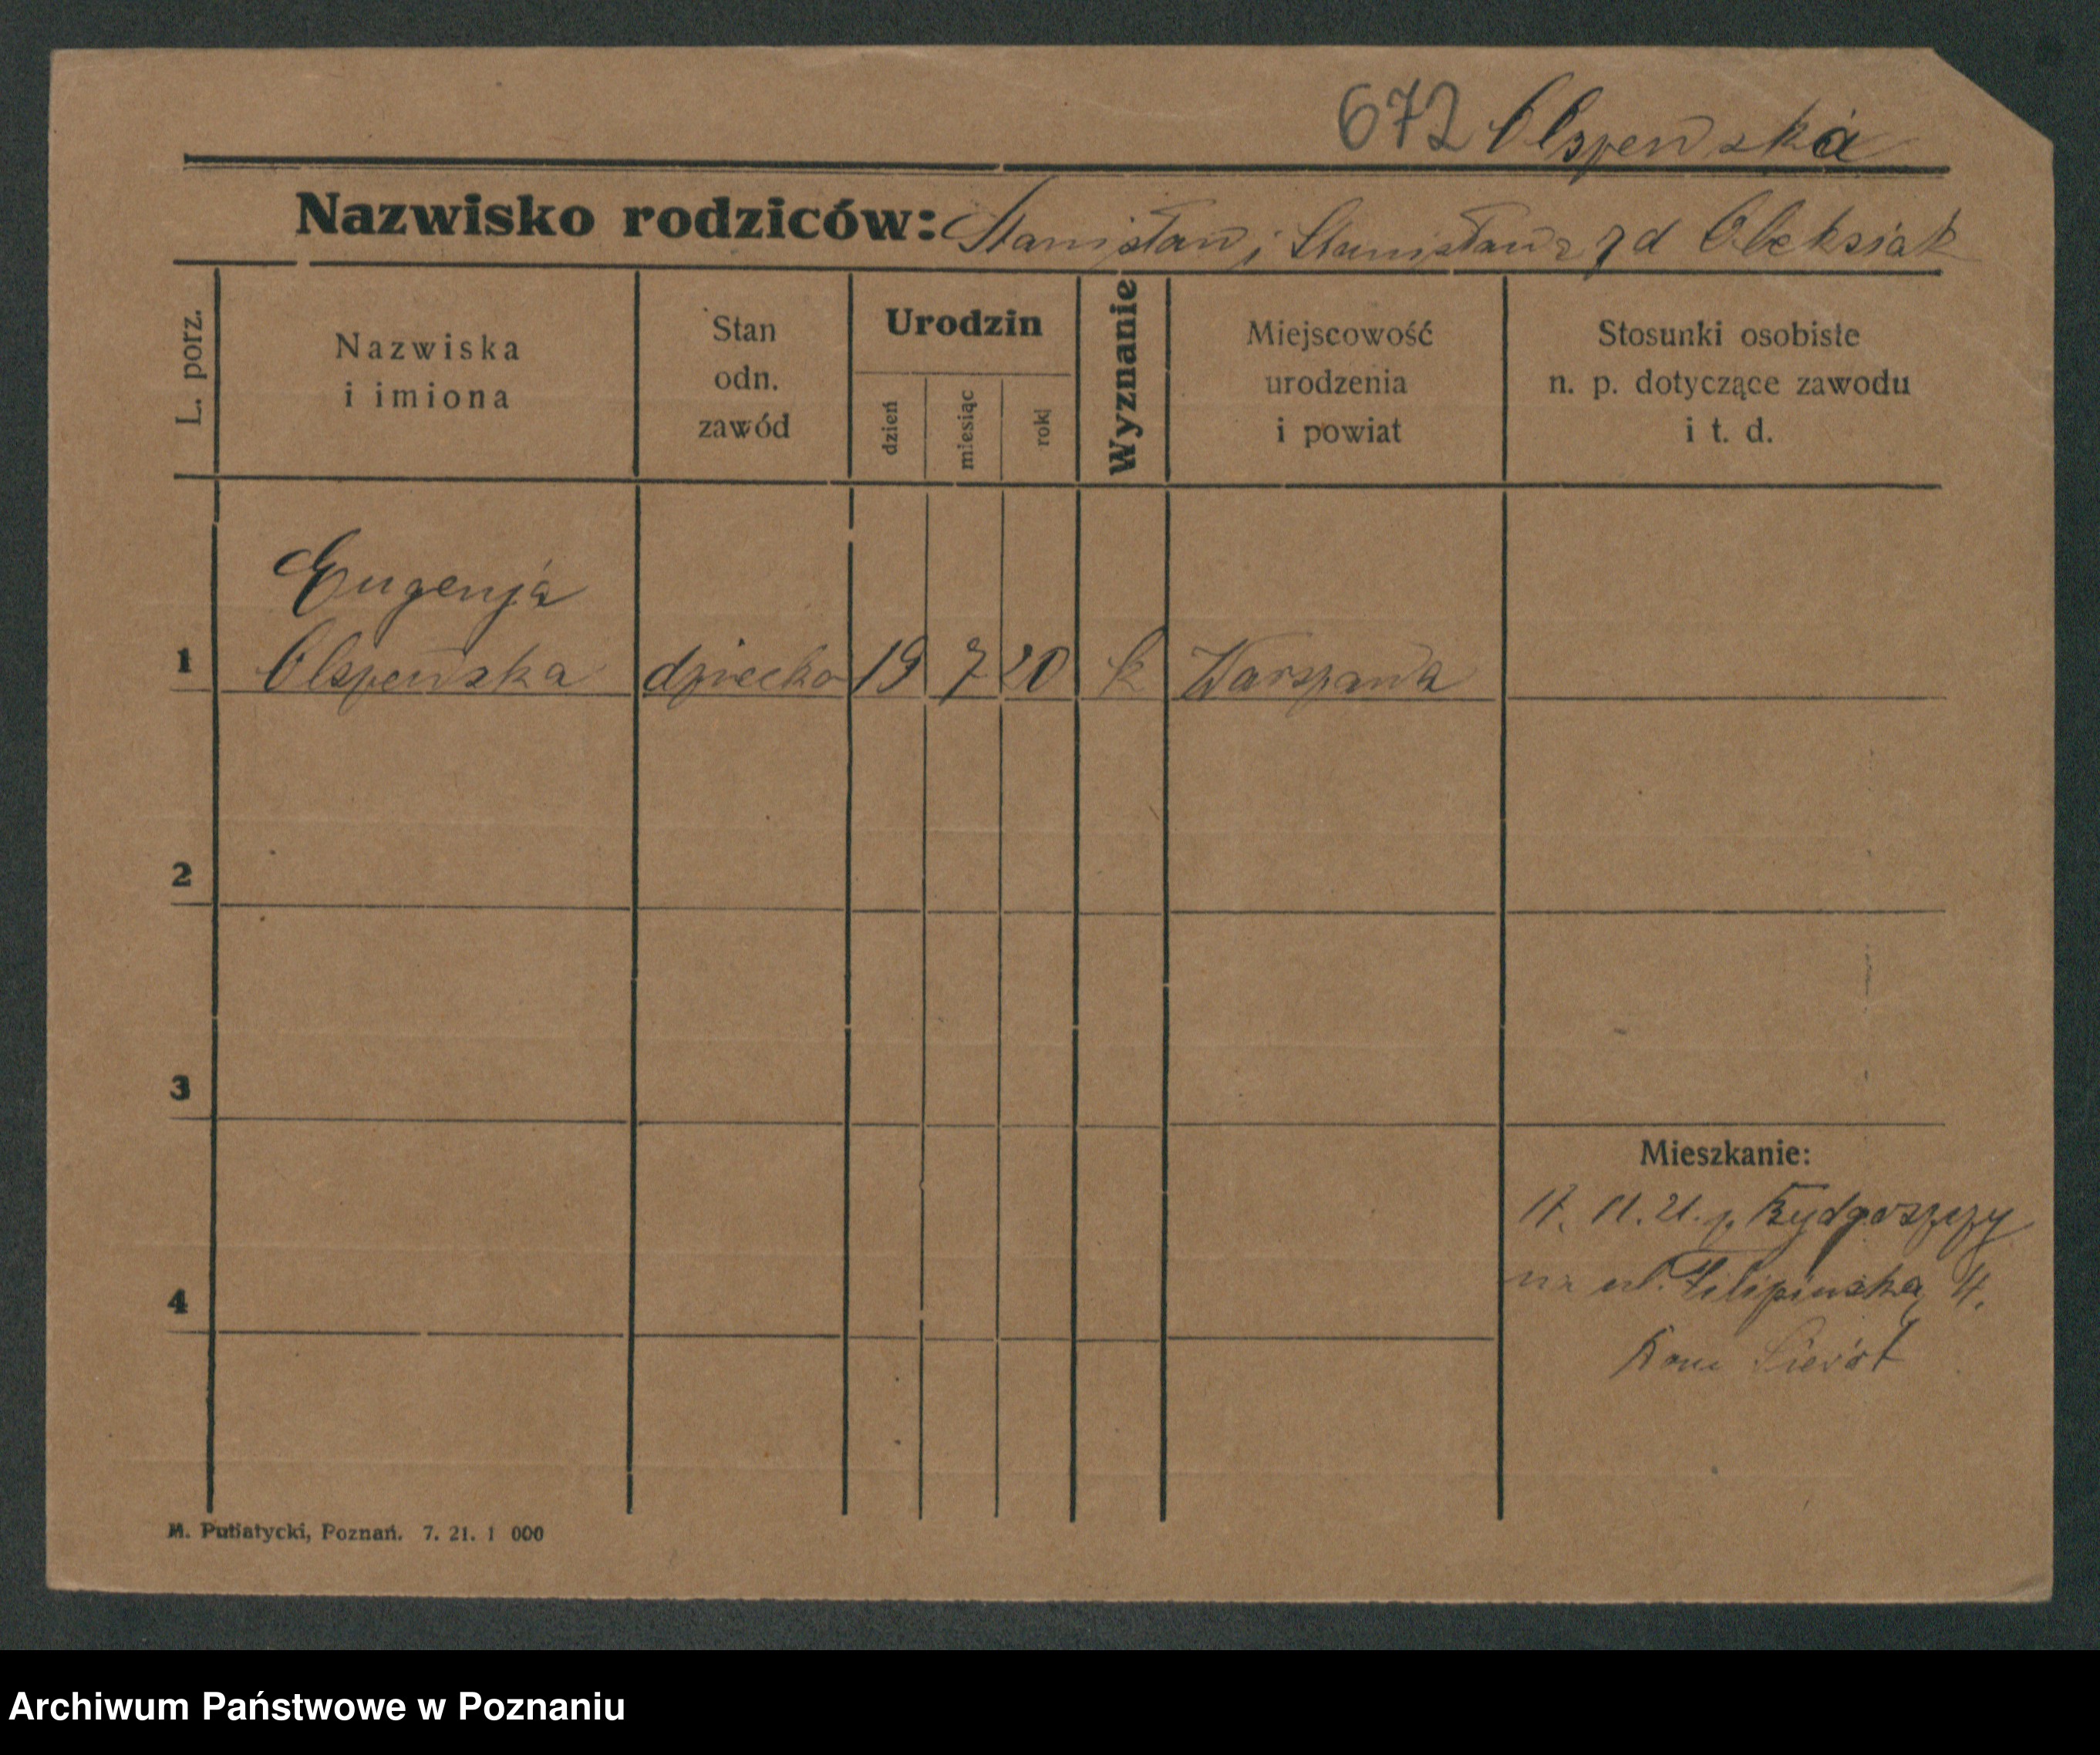 672 Olszewska
Nazwisko rodziców: Stanisław i Stanisława zd Oleksiak
L. porz.
Nazwiska
i imiona
Stan
odn.
zawód
Urodzin
dzień
miesiąc
rok
Wyznanie
Miejscowość
urodzenia
i powiat
Stosunki osobiste
n. p. dotyczące zawodu
i t. d.
Eugenja
1 Olszewska dziecko 19 7 20 k Warszawa
2
3
Mieszkanie:
17. 11. 21. z Bydgoszczy
na ul. Filipińską 4.
4
Dom Sierót
M. Putiatycki, Poznań. 7. 21. 1 000
Archiwum Państwowe w Poznaniu